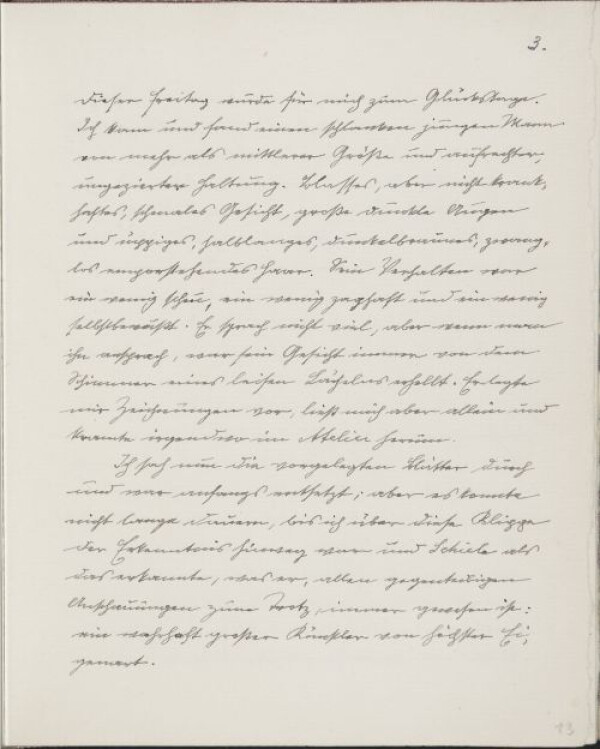 3.
Dieser Freitag wurde für mich zum Glückstage.
Ich kam und fand einen schlanken jungen Mann
von mehr als mittlerer Größe und aufrechter,
ungezierter Haltung. Blasses, aber nicht krank-
haftes, schmales Gesicht, große dunkle Augen
und üppiges, halblanges, dunkelbraunes, zwang-
los emporstehendes Haar. Sein Verhalten war
ein wenig scheu, ein wenig zaghaft und ein wenig
selbstbewußt. Er sprach nicht viel, aber wenn man
ihn ansprach, war sein Gesicht immer von dem
Schimmer eines leisen Lächelns erhellt. Er legte
mir Zeichnungen vor, ließ mich aber allein und
kramte irgendwo im Atelier herum.
Ich sah nun die vorgelegten Blätter durch
und war anfangs entsetzt; aber es konnte
nicht lange dauern, bis ich über diese Klippe
der Erkenntnis hinweg war und Schiele als
das erkannte, was er, allen gegenteiligen
Anschauungen zum Trotz, immer gewesen ist:
ein wahrhaft großer Künstler von höchster Ei-
genart.
13